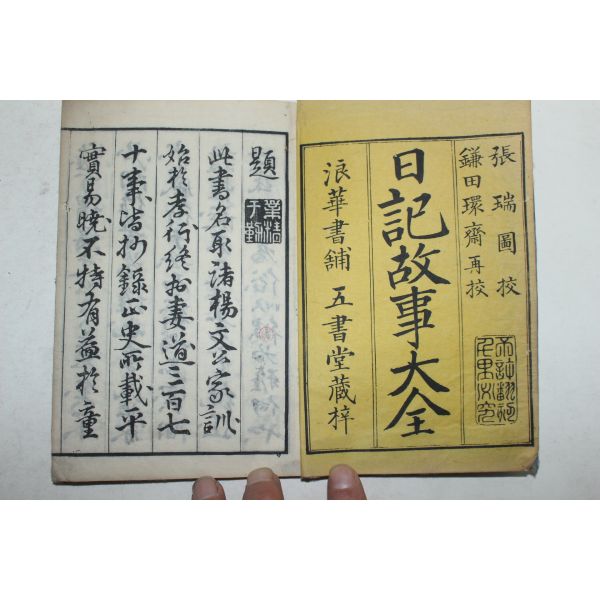 張瑞圖校
鎌田環齋再挍
日記故事大全
浪華書舖 五書堂蔵梓
不許翻刻
千里必究
題
業精
于勤
此書名取諸楊文公家訓
始於孝行終於妻道三百七
十事皆抄錄正史所載平
實易曉不特有益於童